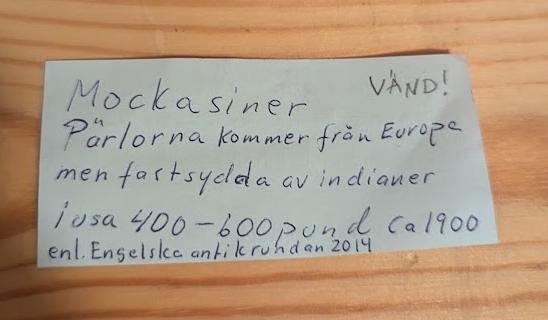 VÄND!
Mockasiner
Pärlorna kommer från Europa
men fastsydda av indianer
i usa 400-600 pund ca 1900
enl. Engelska antikrundan 2014